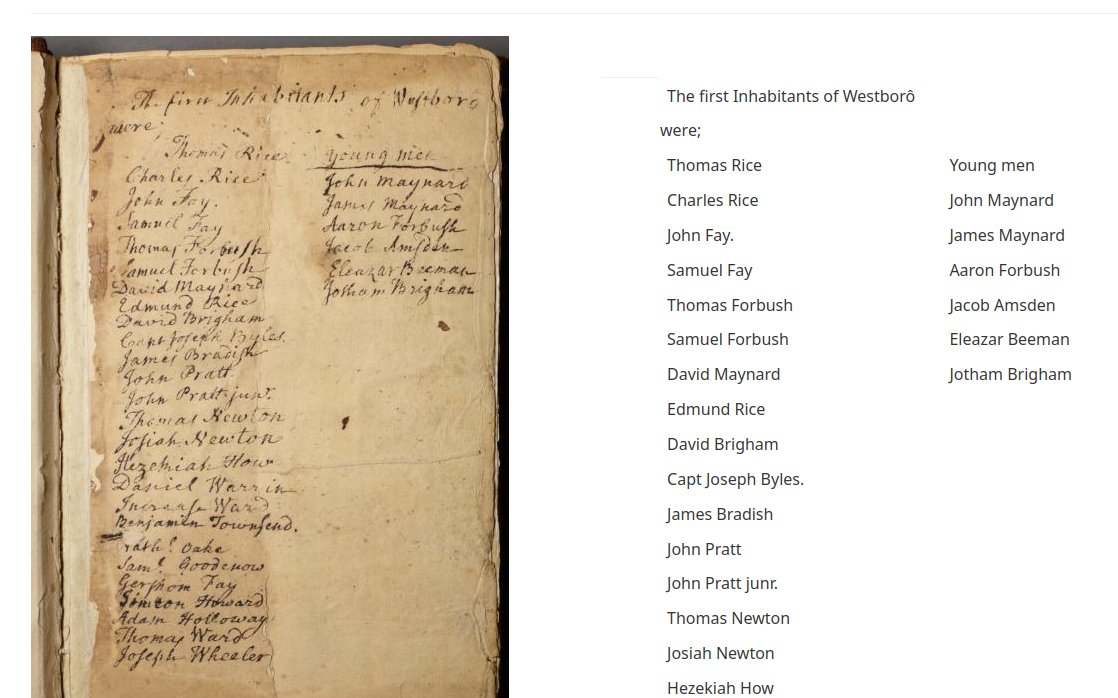 The first Inhabitants of Westboro
were;
Thomas Rice
Charles Rice
John Fay.
Samuel Fay
Thomas Forbush
Samuel Forbush
David Maynard
Edmund Rice
David Brigham
Capt Joseph Byles.
James Bradish
John Pratt
John Pratt junr.
Thomas Newton
Josiah Newton
Hezekiah How
Daniel Warrin
Increase Ward
Benjamin Townsend.
Nathl. Oake
Saml. Goodenow
Gershom Fay
Simeon Howard
Adam Holloway
Thomas Ward
Joseph Wheeler
Young men
John Maynard
James Maynard
Aaron Forbush
Jacob Amsden
Eleazar Beeman
Jotham Brigham
The first Inhabitants of Westborô
were;
Thomas Rice
Charles Rice
John Fay.
Samuel Fay
Thomas Forbush
Samuel Forbush
David Maynard
Edmund Rice
David Brigham
Capt Joseph Byles.
James Bradish
John Pratt
John Pratt junr.
Thomas Newton
Josiah Newton
Hezekiah How
Young men
John Maynard
James Maynard
Aaron Forbush
Jacob Amsden
Eleazar Beeman
Jotham Brigham